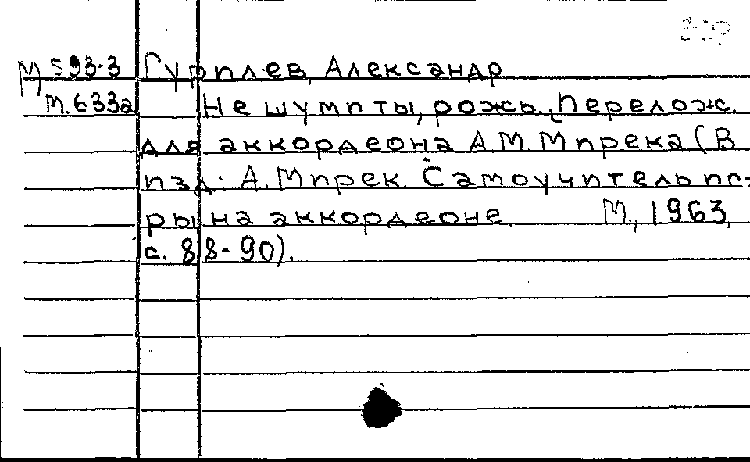 М 593-3 Гурилев, Александр
М.633а Не шуми ты, рожь. Перелож.
для аккордеона А.М Мирека (В
изд: А. Мирек Самоучитель иг-
ры на аккордеоне. М, 1963,
с. 88-90).